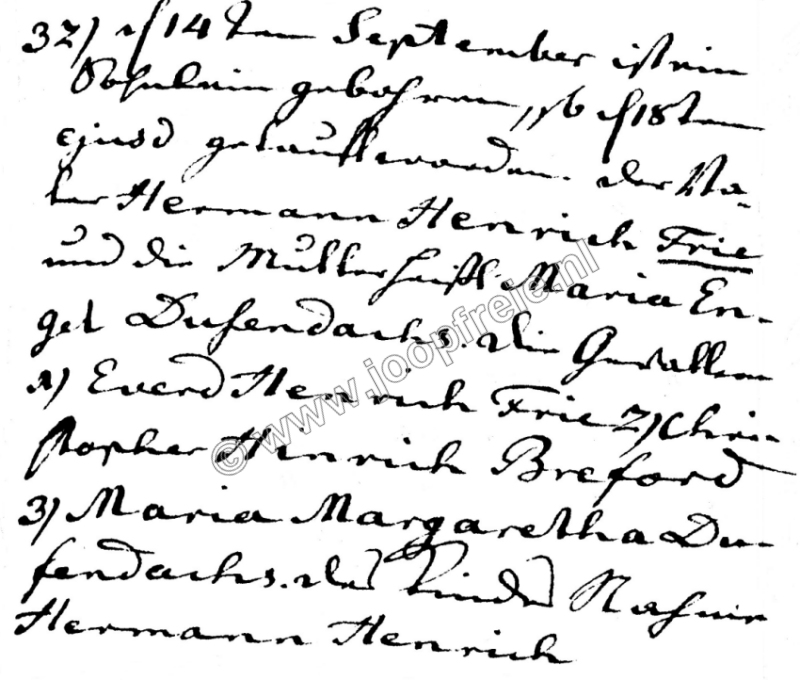 32) d 14ten September ist ein
Söhnlein gebohren, so d 18ten
ejusd getaufft worden. der Va-
ter Hermann Henrich Frie
und die Mutter heißt Maria En-
gel Dusendachs. die Gevattern
1) Everd Henrich Frie 2) Chri-
stopher Hinrich Breford
3) Maria Margaretha Du-
sendachs. des Kindes Nahme
Hermann Henrich
© www.joopfreje.nl